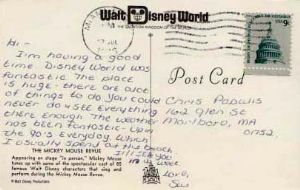 Walt Disney World
THE VACATION KINGDOM OF THE WORLD
MIAMI
JUL
9c
Post Card
Hi -
I'm having a good
time. Disney World was
fantastic. The place
is huge - there are alot
of things to do You could
never do & see Everything
there Enough. The weather
has been fantastic - up in
the 90's Everyday, which
I usually spend at the beach
I'll see you
in a week
Love,
Sue
Chris
162 Glen St
Marlboro, MA
01752.
THE MICKEY MOUSE REVUE
Appearing on stage "in person," Mickey Mouse
tunes up with some of the spectacular cast of 80
famous Walt Disney characters that sing and
perform during the Mickey Mouse Revue.
© Walt Disney Productions